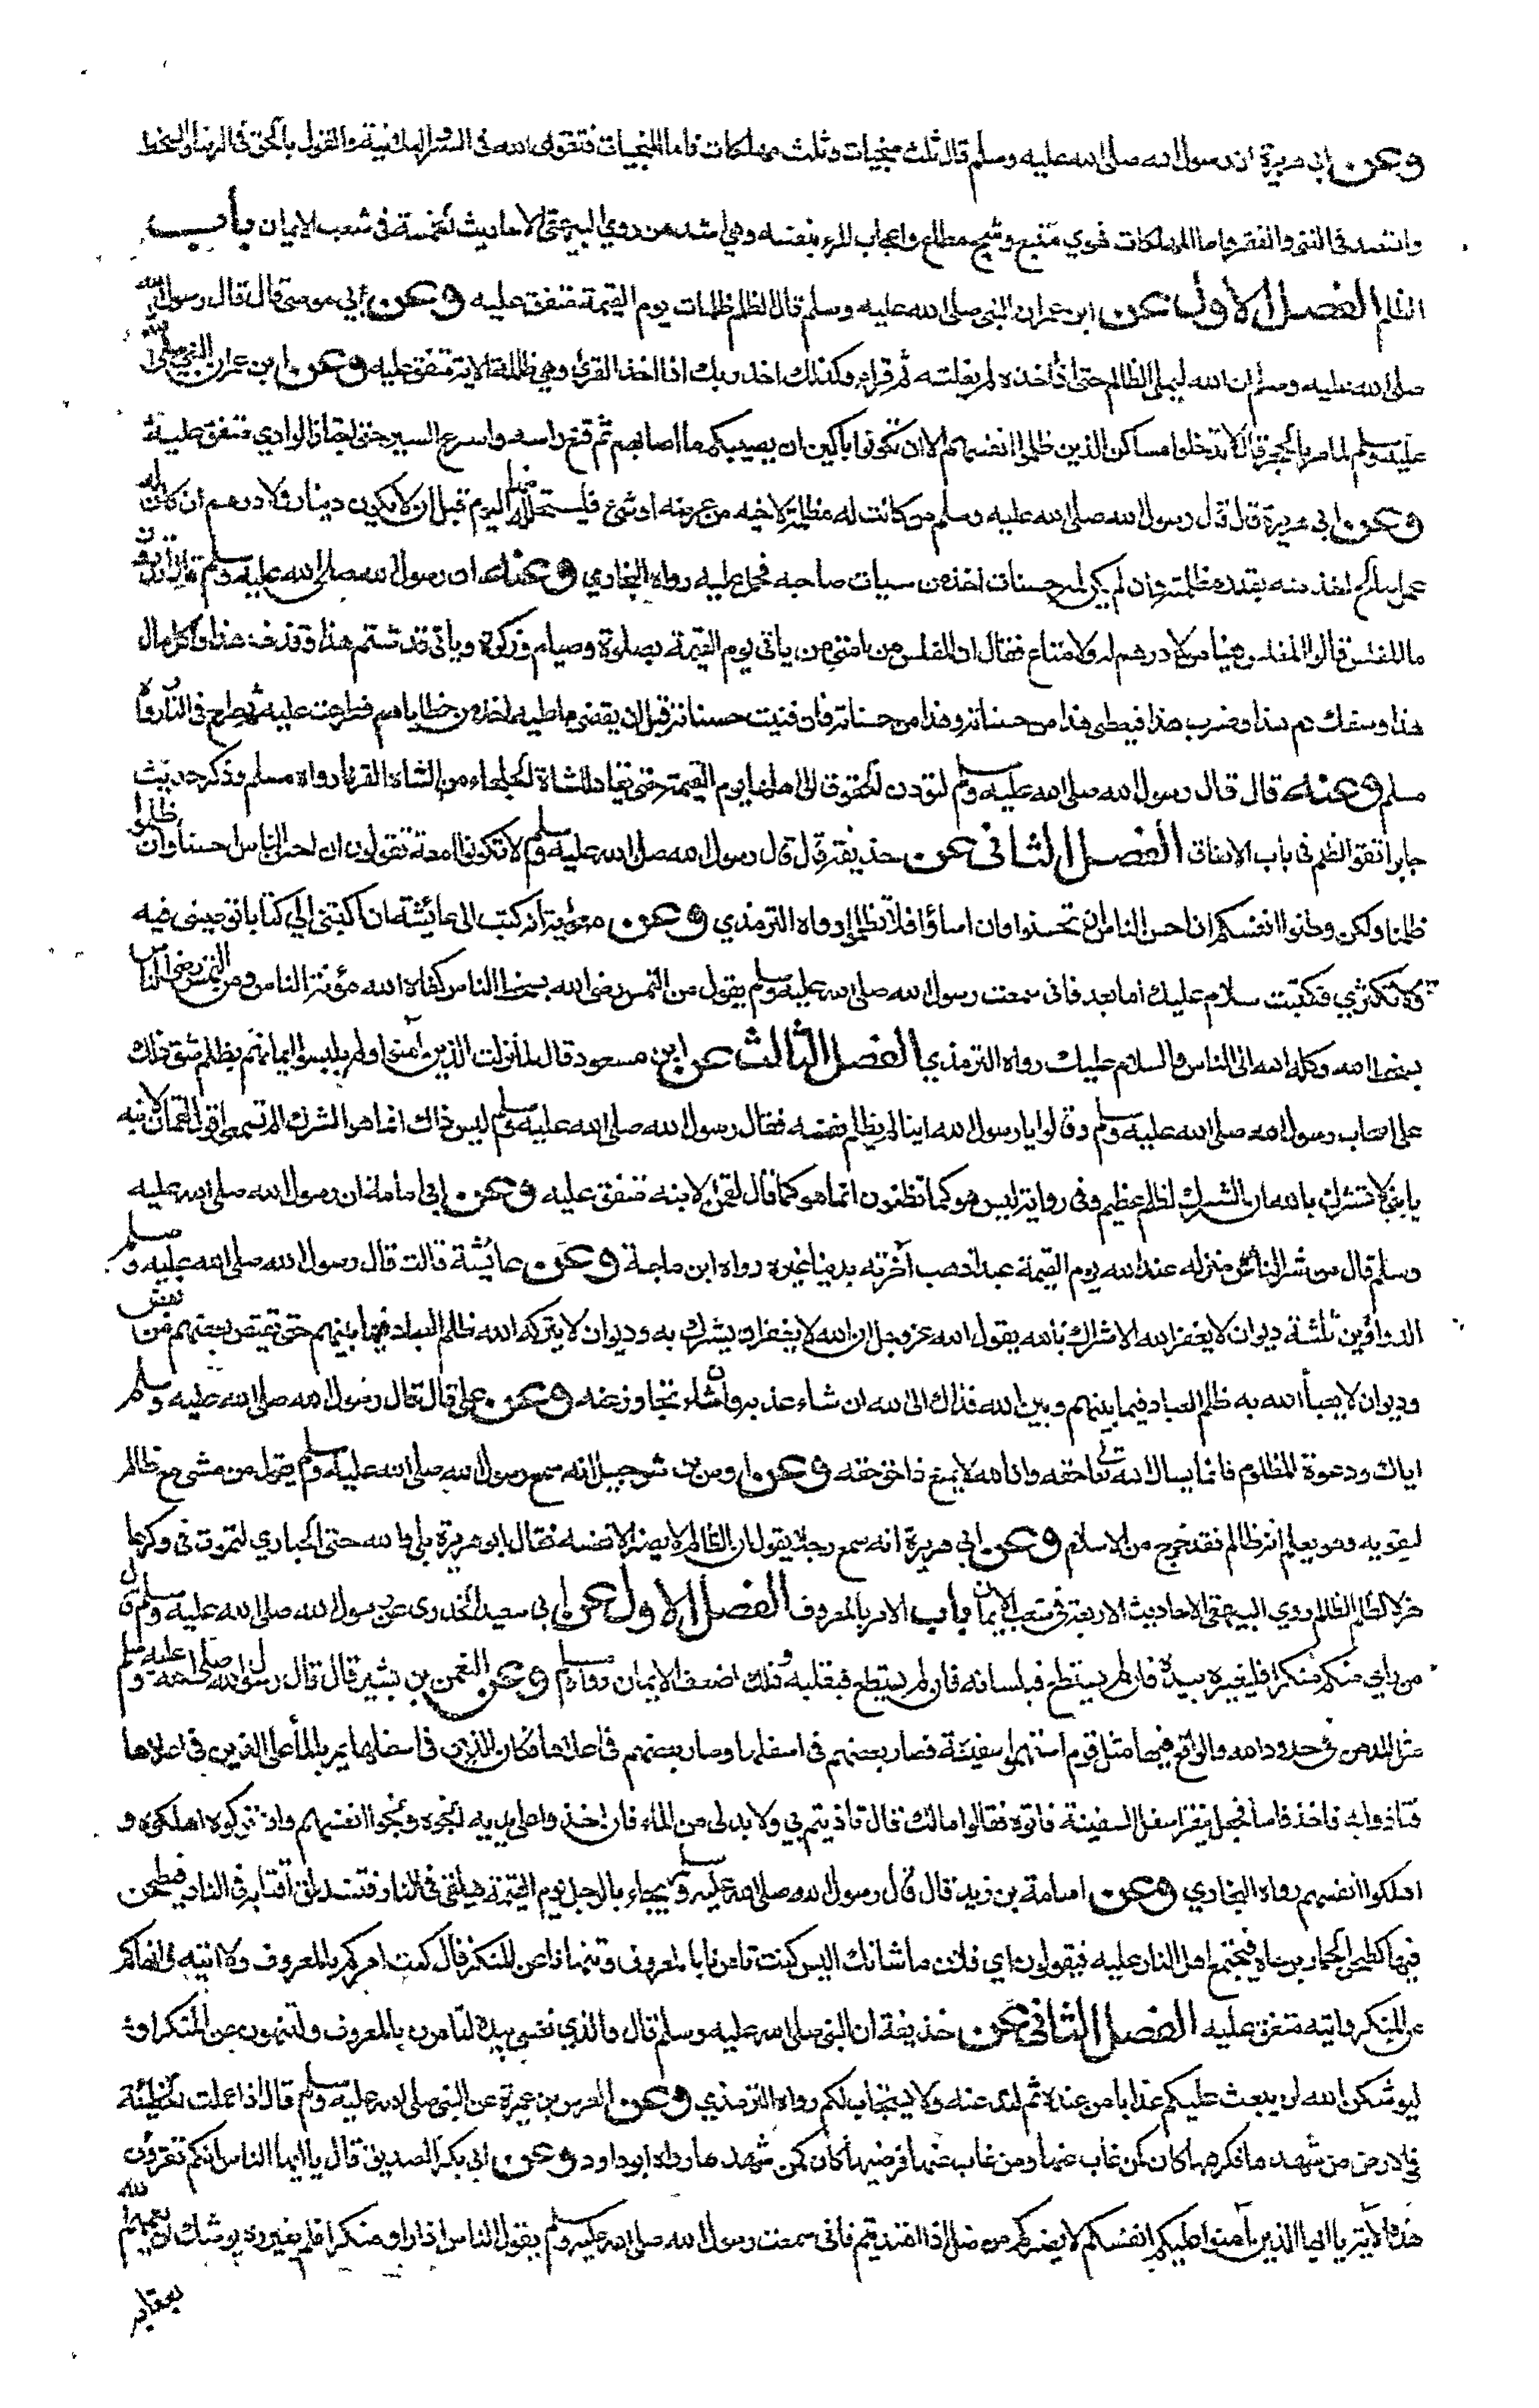 وعن ابي هريرة ان رسول الله صلى الله عليه وسلم قال ثلث منجيات وثلث مهلكات فاما المنجيات فتقوى الله في السر والعلانية والقول بالحق في الرضا والسخط
والقصد في الغنى والفقر واما المهلكات فهوي متبع وشح مطاع واعجاب المرء بنفسه وهي اشدهن روي البيهقي الاحاديث الخمسة في شعب الايمان باب
الظلم الفصل الاول عن ابن عمر ان النبي صلى الله عليه وسلم قال الظلم ظلمات يوم القيمة متفق عليه وعن ابي موسى قال قال رسول الله
صلى الله عليه وسلم ان الله ليملي الظالم حتى اذا اخذه لم يفلته ثم قرأ وكذلك اخذ ربك اذا اخذ القرى وهي ظالمة الاية متفق عليه وعن ابن عمر ان النبي صلى الله
عليه وسلم لما مر بالحجر قال لا تدخلوا مساكن الذين ظلموا انفسهم الا ان تكونوا باكين ان يصيبكم ما اصابهم ثم قنع راسه واسرع السير حتى اجتاز الوادي متفق عليه
وعن ابي هريرة قال قال رسول الله صلى الله عليه وسلم من كانت له مظلمة لاخيه من عرضه او شئ فليستحلله منه اليوم قبل ان لا يكون دينار ولا درهم ان كان له
عمل صالح اخذ منه بقدر مظلمته وان لم يكن له حسنات اخذ من سيات صاحبه فحمل عليه رواه البخاري وعنه ان رسول الله صلى الله عليه وسلم قال اتدرون
ما المفلس قالوا المفلس فينا من لا درهم له ولا متاع فقال ان المفلس من امتي من ياتي يوم القيمة بصلوة وصيام وزكوة وياتي قد شتم هذا وقذف هذا واكل مال
هذا وسفك دم هذا وضرب هذا فيعطى هذا من حسناته وهذا من حسناته فان فنيت حسناته قبل ان يقضى ما عليه اخذ من خطاياهم فطرحت عليه ثم طرح في النار رواه
مسلم وعنه قال قال رسول الله صلى الله عليه وسلم لتؤدن الحقوق الى اهلها يوم القيمة حتى يقاد للشاة الجلحاء من الشاة القرناء رواه مسلم وذكر حديث
جابر اتقوا الظلم في باب الانفاق الفصل الثاني عن حذيفة قال قال رسول الله صلى الله عليه وسلم لا تكونوا امعة تقولون ان احسن الناس احسنا وان ظلموا
ظلمنا ولكن وطنوا انفسكم ان احسن الناس ان تحسنوا وان اساؤا فلا تظلموا رواه الترمذي وعن معوية انه كتب الى عائشة ان اكتبي الي كتابا توصيني فيه
ولا تكثري فكتبت سلام عليك اما بعد فاني سمعت رسول الله صلى الله عليه وسلم يقول من التمس رضى الله بسخط الناس كفاه الله مؤنة الناس ومن التمس رضى الناس
بسخط الله وكله الله الى الناس والسلام عليك رواه الترمذي الفصل الثالث عن ابن مسعود قال لما نزلت الذين آمنوا ولم يلبسوا ايمانهم بظلم شق ذلك
على اصحاب رسول الله صلى الله عليه وسلم وقالوا يا رسول الله اينا لم يظلم نفسه فقال رسول الله صلى الله عليه وسلم ليس ذاك انما هو الشرك الم تسمعوا قول لقمان لابنه
يا بني لا تشرك بالله ان الشرك لظلم عظيم وفي رواية ليس هو كما تظنون انما هو كما قال لقمن لابنه متفق عليه وعن ابي امامة ان رسول الله صلى الله عليه
وسلم قال من شر الناس منزلة عند الله يوم القيمة عبد اذهب آخرته بدنيا غيره رواه ابن ماجة وعن عائشة قالت قال رسول الله صلى الله عليه وسلم
الدواوين ثلثة ديوان لا يغفر الله الاشراك بالله يقول الله عز وجل ان الله لا يغفر ان يشرك به وديوان لا يتركه الله ظلم العباد فيما بينهم حتى يقتص بعضهم من بعض
وديوان لا يعبأ الله به ظلم العباد فيما بينهم وبين الله فذاك الى الله ان شاء عذبه وان شاء تجاوز عنه وعن علي قال قال رسول الله صلى الله عليه وسلم
اياك ودعوة المظلوم فانما يسال الله تعالى حقه وان الله لا يمنع ذا حق حقه وعن اوس بن شرحبيل انه سمع رسول الله صلى الله عليه وسلم يقول من مشى مع ظالم
ليقويه وهو يعلم انه ظالم فقد خرج من الاسلام وعن ابي هريرة انه سمع رجلا يقول ان الظالم لا يضر الا نفسه فقال ابو هريرة بلى والله حتى الحباري لتموت في وكرها
هزلا لظلم الظالم روي البيهقي الاحاديث الاربعة في شعب الايمان باب الامر بالمعروف الفصل الاول عن ابي سعيد الخدري عن رسول الله صلى الله عليه وسلم قال
من راى منكم منكرا فليغيره بيده فان لم يستطع فبلسانه فان لم يستطع فبقلبه وذلك اضعف الايمان رواه مسلم وعن النعمن بن بشير قال قال رسول الله صلى الله عليه وسلم
مثل المدهن في حدود الله والواقع فيها مثل قوم استهموا سفينة فصار بعضهم في اسفلها وصار بعضهم في اعلاها فكان الذي في اسفلها يمر بالماء على الذين في اعلاها
فتاذوا به فاخذ فاسا فجعل ينقر اسفل السفينة فاتوه فقالوا مالك قال تاذيتم بي ولا بد لي من الماء فان اخذوا على يديه انجوه ونجوا انفسهم وان تركوه اهلكوه و
اهلكوا انفسهم رواه البخاري وعن اسامة بن زيد قال قال رسول الله صلى الله عليه وسلم يجاء بالرجل يوم القيمة فيلقى في النار فتندلق اقتابه في النار فيطحن
فيها كطحن الحمار برحاه فيجتمع اهل النار عليه فيقولون اي فلان ما شانك اليس كنت تامرنا بالمعروف وتنهانا عن المنكر قال كنت امركم بالمعروف ولا اتيه وانهاكم
عن المنكر واتيه متفق عليه الفصل الثاني عن حذيفة ان النبي صلى الله عليه وسلم قال والذي نفسي بيده لتامرن بالمعروف ولتنهون عن المنكر او
ليوشكن الله ان يبعث عليكم عذابا من عنده ثم لتدعنه ولا يستجاب لكم رواه الترمذي وعن العرس بن عميرة عن النبي صلى الله عليه وسلم قال اذا عملت الخطيئة
في الارض من شهدها فكرهها كان كمن غاب عنها ومن غاب عنها فرضيها كان كمن شهدها رواه ابو داود وعن ابي بكر الصديق قال يا ايها الناس انكم تقرؤن
هذه الاية يا ايها الذين آمنوا عليكم انفسكم لا يضركم من ضل اذا اهتديتم فاني سمعت رسول الله صلى الله عليه وسلم يقول ان الناس اذا راوا منكرا فلم يغيروه يوشك ان يعمهم الله
بعقابه